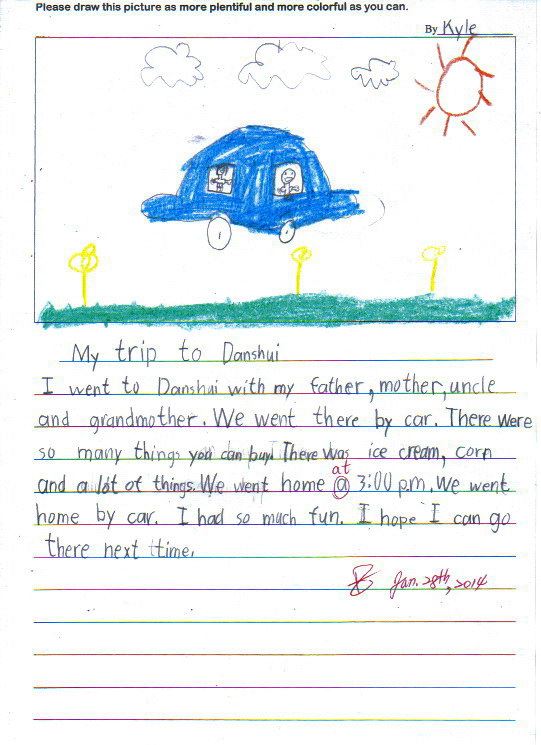 Please draw this picture as more plentiful and more colorful as you can.
By Kyle
My trip to Danshui
I went to Danshui with my father, mother, uncle
and grandmother. We went there by car. There were
so many things you can buy! There was ice cream, corn
at
and a lot of things. We went home @ 3:00 p.m. We went
home by car. I had so much fun. I hope I can go
there next time.
Jan. 28th, 2014